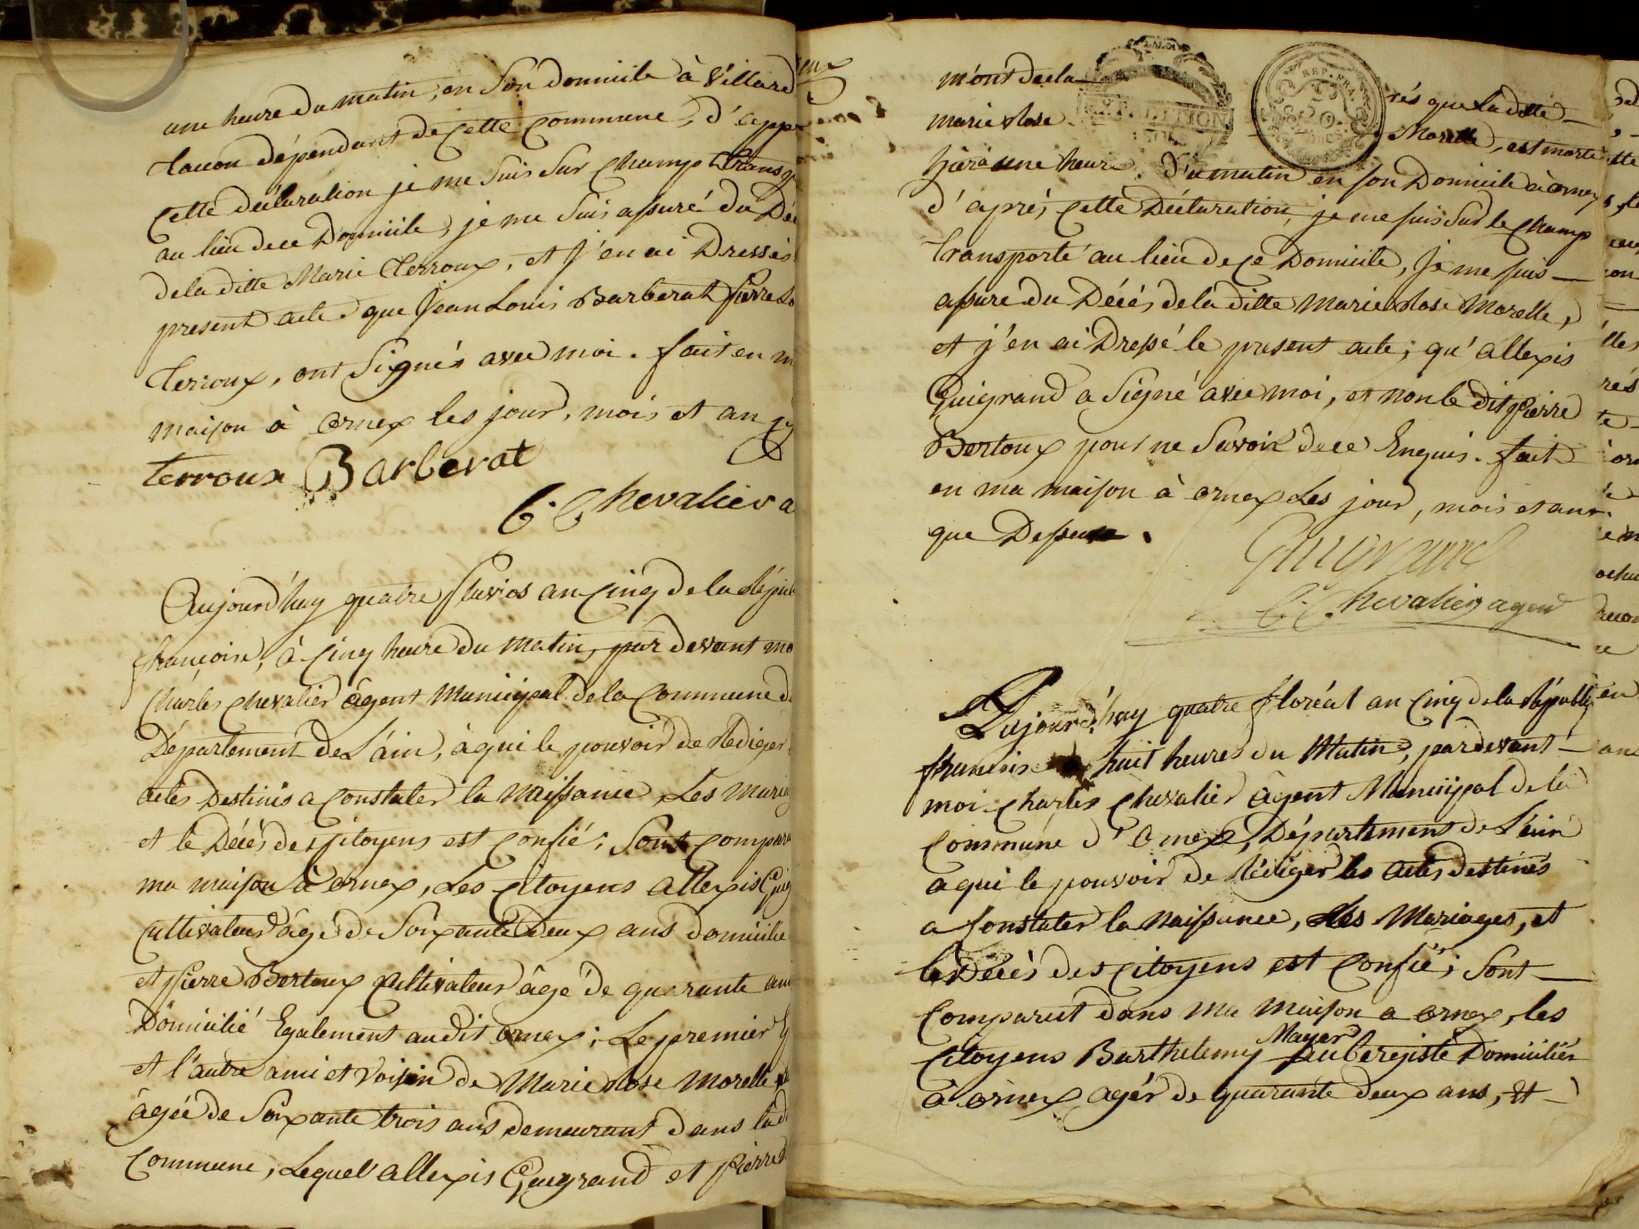 une heure du matin, en Son domicile à Villard
tacon dépendant de cette commune, d'apprè
cette déclaration je me Suis Sur champ transp
au lieu de ce Domicile, je me Suis assuré du Déc
de la ditte Marie Terroux, et j'en ai Dressés
present acte que Jean Louis Barberat Pierre
Terroux, ont Signés avec moi. fait en m
maison à ornex les jour, mois et an
terroux Barberat
C. Chevalier a
Aujourd'huy quatre pluvios an Cinq de la Répub
françoise, à Cinq heure du Matin, par devant mo
Charles Chevalier âgent Municipal de la Commune d
Département de L'ain, à qui le pouvoir de Rediger
actes Destinés a Constater la Naissance, Les Mariag
et le Décés des Citoyens est Confié; Sont Compar
ma maison à ornex, Les Citoyens allexis Guig
Cultivateur âgé de Soixante deux ans domicilie
et Pierre Bertoux Cultivateur âgé de quarante ans
Domicilié Egalement audit ornex; Le premier
et l'autre ami et Voisin de Marie Rose Morelle
âgée de Soixante trois ans demeurant dans la d
Commune, Lequel allexis Guigrand et Pierre
m'ont decla rés que La ditte
marie Rose Morelle, est morte
hier à une heure du matin en son Domicile à ornex
d'aprés Cette Déclaration, je me suis Sur le Champ
transporté au lieu de Ce Domicile, Je me suis
assure du Décés de la ditte Marie Rose Morelle,
et j'en ai Dressé le present acte; qu'allexis
Guigrand a Signé avec moi, et non le dit Pierre
Bertoux pour ne Savoir de ce Enquis. fait
en ma maison à ornex Les jour, mois et an
que Dessus.
Guigrand
C. Chevalier agent
Aujourd'huy quatre floréal an Cinq de la Républiq
francoise a huit heures du Matin, par devant
moi Charles Chevalier âgent Municipal de la
Commune d'Ornex, Département de L'ain
a qui le pouvoir de Rédiger les actes destinés
a Constater la Naissance, Les Mariages, et
le Décès des Citoyens est Confié; Sont
Comparut dans ma maison a ornex, les
Mayer
Citoyens Barthelemy auberegiste Domiciliér
à ornex agér de quarante deux ans, et